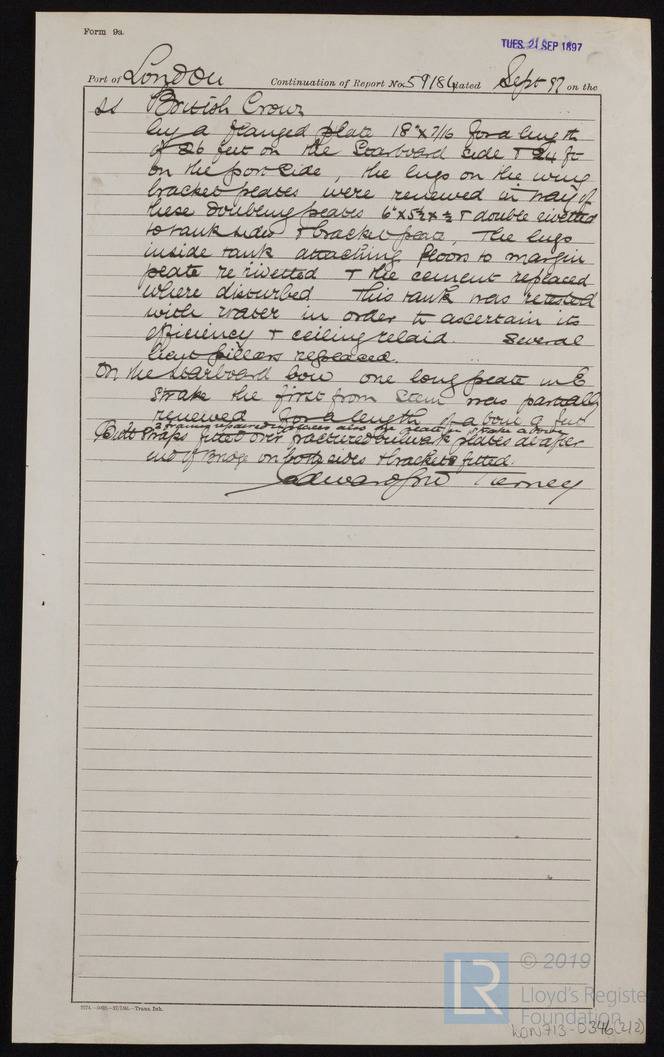 Form 9a.
TUES. 21 SEP 1897
Port of London Continuation of Report No. 59184 dated Sept 97 on the
ss British Crown
by a flanged plate 18" x 7/16 for a length
of 26 feet on the Starboard side & 24 ft
on the port side, the lugs on the wing
bracket plates were renewed in way of
these doubling plates 6" x 5½ x ½ & double rivetted
to tank sides & bracket plate, The lugs
inside tank attaching floors to margin
plate re rivetted & the cement replaced
where disturbed. This tank was retested
with water in order to ascertain its
efficiency & ceiling relaid. Several
bent pillars replaced.
On the starboard bow one long plate in E
strake the first from stem was partially
renewed for a length of about 9 feet
2 frames repaired in places also the plate in strake above
Butt straps fitted over fractured bulwark plates at after
end of Bridge on both sides & brackets fitted.
Tierney
© 2019
LR
Lloyd's Register
Foundation
LON713-0346(2/2)